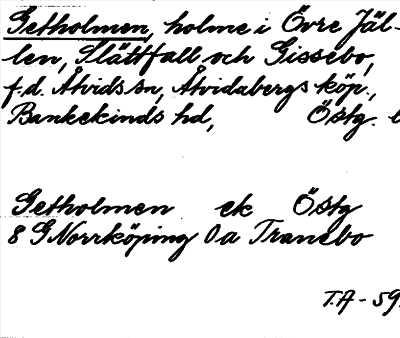 Getholmen, holme i Övre Jäl-
len, Slättfall och Gissebo,
f.d. Åtvids sn, Åtvidabergs köp.,
Bankekinds hd, Östg. l
Getholmen ek Östg
8 G Norrköping 0a Tranebo
T.A - 59